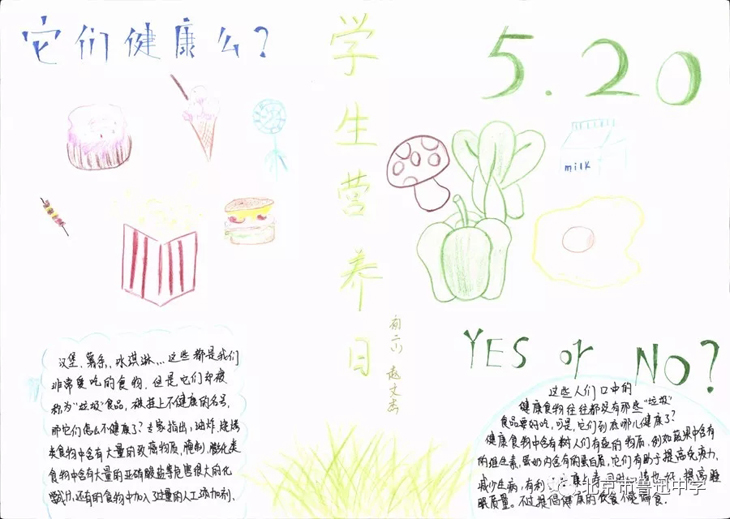 它们健康么?
学生营养日
5.20
milk
YES or NO?
初二(1)
汉堡、薯条、冰淇淋...这些都是我们
非常爱吃的食物,但是它们却被
称为“垃圾”食品,碰上不健康的名号,
那它们怎么不健康了?专家指出:油炸、烧烤
类食物中含有大量的致癌物质,腌制、膨化类
食物中含有大量的亚硝酸盐等危害很大的化
还有的食物中加入过量的人工添加剂.
这些人们口中的
健康食物往往都没有那些“垃圾”
食品要好吃,可是,它们到底哪儿健康了?
健康食物中含有对人们有益的物质,例如蔬果中含有
的维生素,蛋奶内含有的蛋白质,它们有助于提高免疫力,
减少生病,有利
眠质量。不过提倡健康的饮食不是偏食.
北京市鲁迅中学